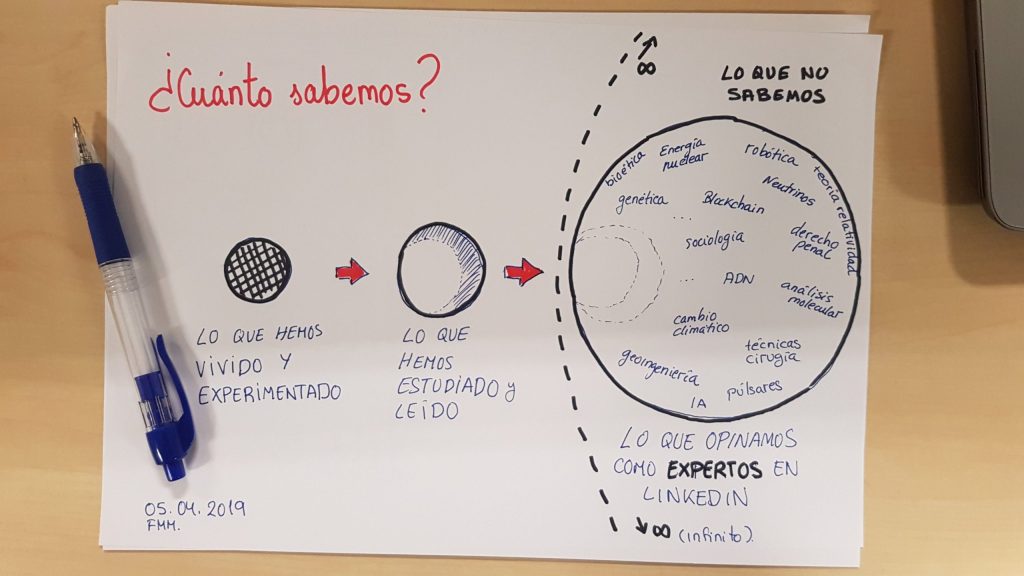 ¿Cuánto sabemos?
LO QUE HEMOS
VIVIDO Y
EXPERIMENTADO
LO QUE
HEMOS
ESTUDIADO y
LEÍDO
∞
LO QUE NO
SABEMOS
bioética
Energía
nuclear
robótica
teoría relatividad
Neutrinos
genética
...
Blockchain
sociología
derecho
penal
...
ADN
análisis
molecular
cambio
climático
técnicas
cirugía
geoingeniería
IA
púlsares
LO QUE OPINAMOS
COMO EXPERTOS EN
LINKEDIN
∞ (infinito).
05.04.2019
FMM.